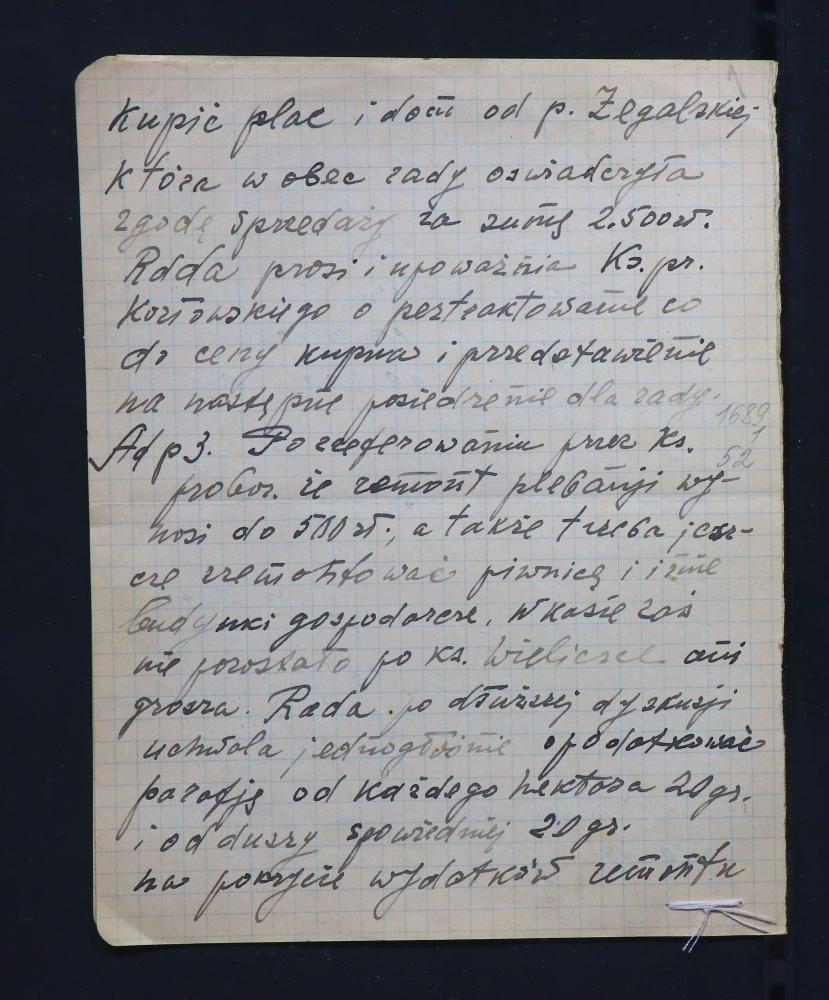 Kupić plac i dom od p. Żegalskiej
która w obec rady oświadczyła
zgodę sprzedaży za sumę 2.500 zł.
Rada prosi i upoważnia Ks. pr.
Kozłowskiego o pertraktowanie co
do ceny kupna i przedstawienie
na następne posiedzenie dla rady.
1689
1
Ad p 3. Po zreferowaniu przez Ks.
52
probos. że remont plebanji wy-
nosi do 500 zł., a także trzeba jesz-
cze zremontować piwnicę i inne
budynki gospodarcze, w kasie zaś
nie pozostało po ks. Wieliczce ani
grosza. Rada po dłuższej dyskusji
uchwala jednogłośnie opodatkować
parafję od każdego hektara 20 gr.
i od duszy spowiedniej 20 gr.
na pokrycie wydatków remontu